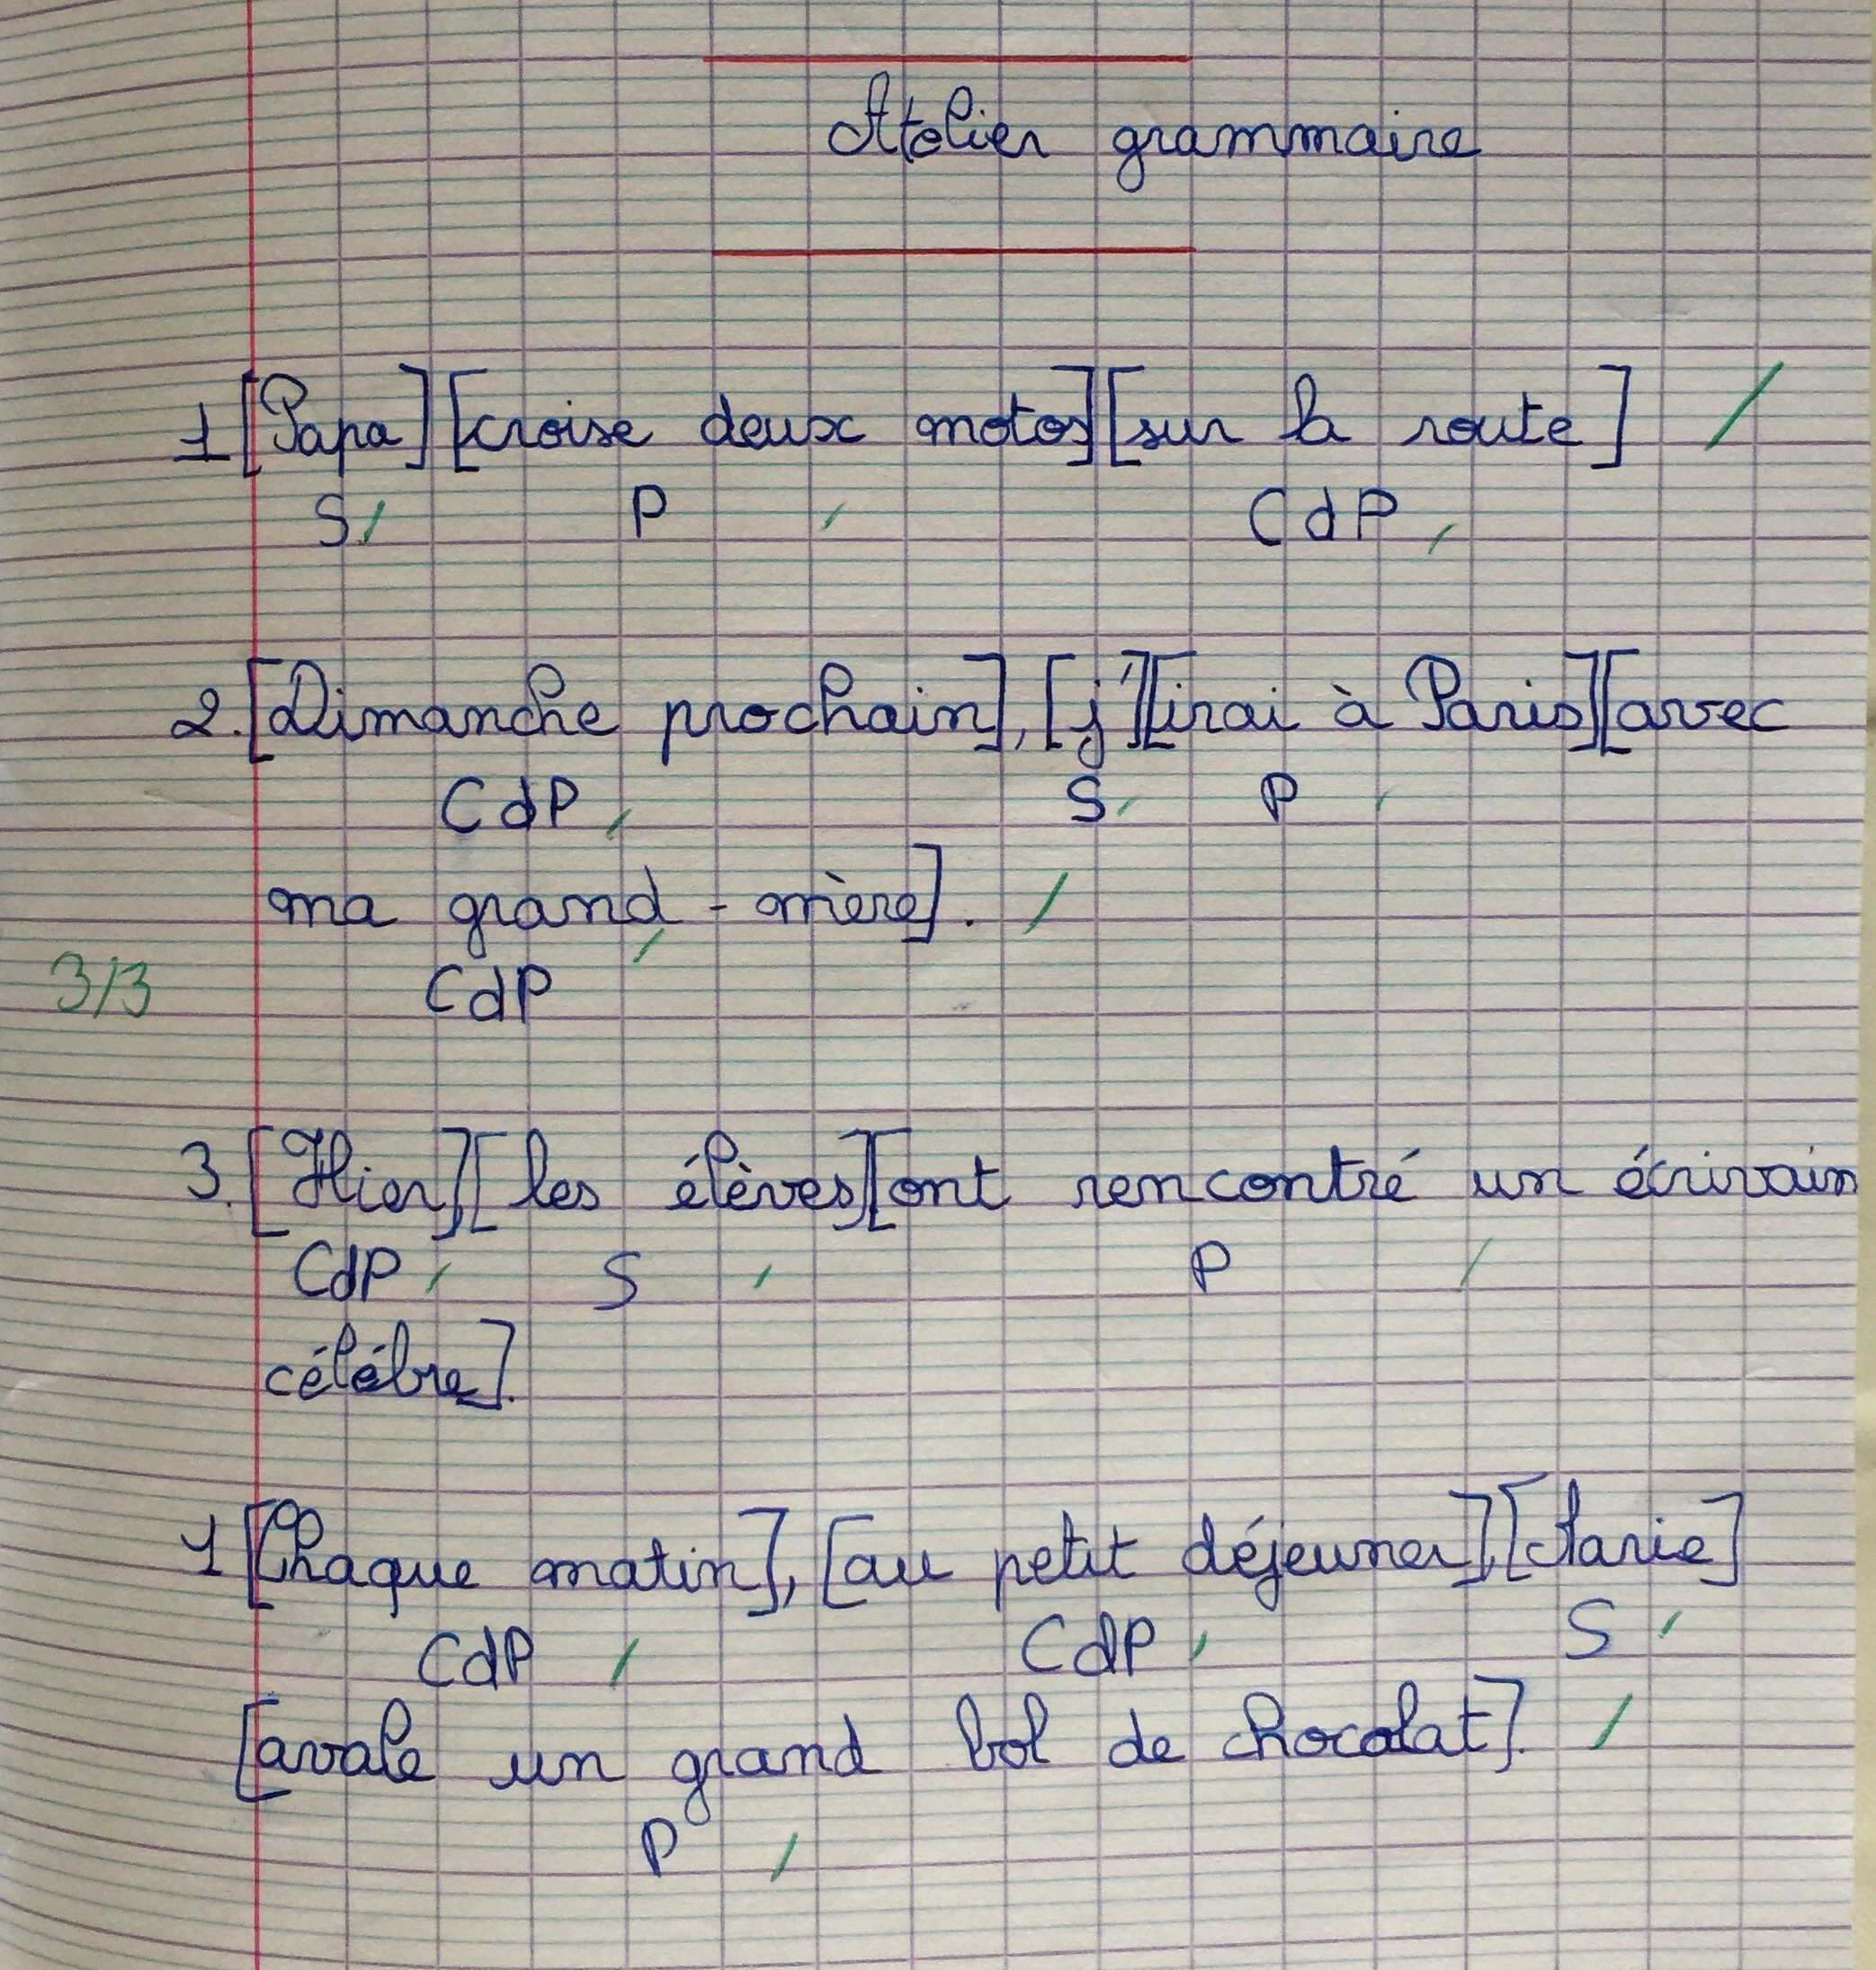 Atelier grammaire
1 [Papa] [croise deux motos] [sur la route]
S P CdP
2. [Dimanche prochain], [j'] [irai à Paris] [avec
CdP S P
ma grand-mère].
3/3
CdP
3. [Hier] [les élèves] [ont rencontré un écrivain
CdP S P
célébre].
1 [Chaque matin], [au petit déjeuner], [Marie]
CdP CdP S
[avale un grand bol de chocolat].
P